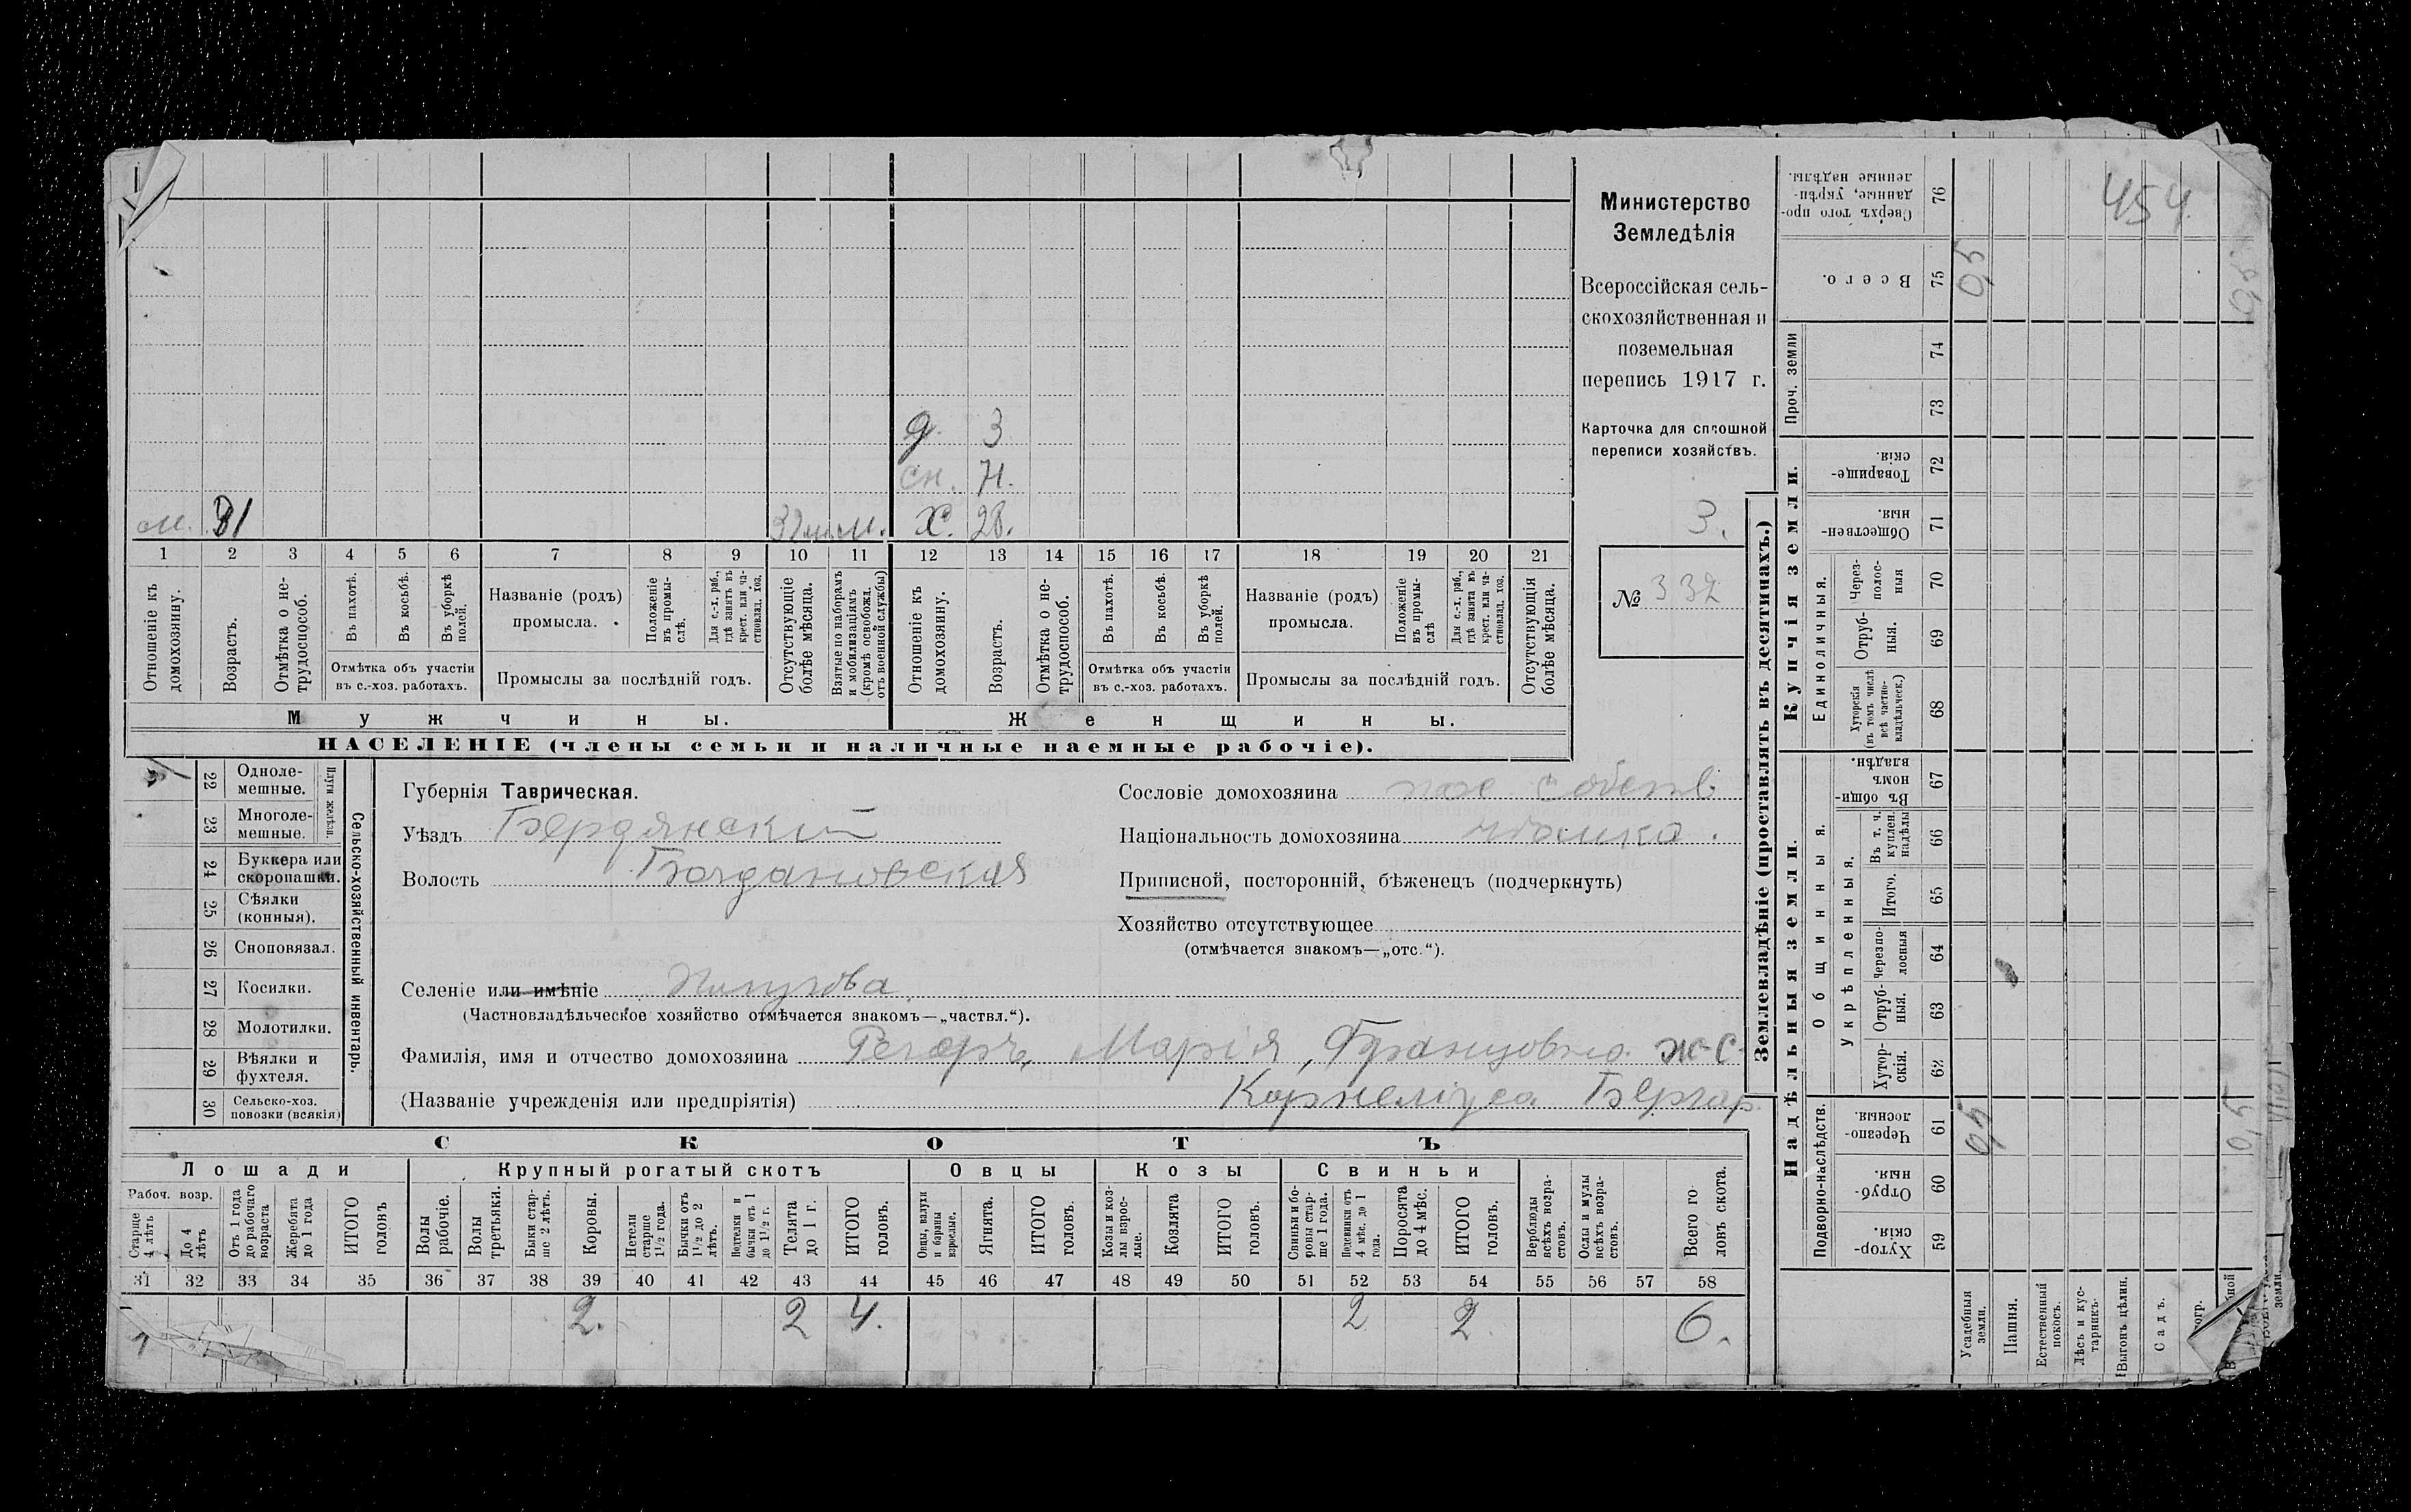 Министерство
Земледѣлія
Всероссійская сель-
скохозяйственная и
поземельная
перепись 1917 г.
Карточка для сплошной
переписи хозяйствъ.
3.
№ 332
454
д. 3
сн. 71.
м. 31 м. Х. 28.
1 2 3 4 5 6 7 8 9 10 11 12 13 14 15 16 17 18 19 20 21
Отношеніе къ домохозяину.
Возрастъ.
Отмѣтка о не-трудоспособ.
Въ пахотѣ.
Въ косьбѣ.
Въ уборкѣ полей.
Отмѣтка объ участіи
въ с.-хоз. работахъ.
Названіе (родъ)
промысла.
Положеніе въ промы-слѣ.
Для с.-х. раб., гдѣ занятъ въ крест. или ча-стновлад. хоз.
Промыслы за послѣдній годъ.
Отсутствующіе болѣе мѣсяца.
Взятые по наборамъ и мобилизаціямъ (кромѣ освобожд. отъ военной службы)
Отношеніе къ домохозяину.
Возрастъ.
Отмѣтка о не-трудоспособ.
Въ пахотѣ.
Въ косьбѣ.
Въ уборкѣ полей.
Отмѣтка объ участіи
въ с.-хоз. работахъ.
Названіе (родъ)
промысла.
Положеніе въ промы-слѣ
Для с.-х. раб., гдѣ занята въ крест. или ча-стновлад. хоз.
Промыслы за послѣдній годъ.
Отсутствующія болѣе мѣсяца.
Мужчины. Женщины.
НАСЕЛЕНІЕ (члены семьи и наличные наемные рабочіе).
22 Одноле-мешные.
23 Многоле-мешные.
Плуги желѣзн.
24 Буккера или скоропашки.
25 Сѣялки (конныя).
26 Сноповязал.
27 Косилки.
28 Молотилки.
29 Вѣялки и фухтеля.
30 Сельско-хоз. повозки (всякія)
Сельско-хозяйственный инвентарь.
Губернія Таврическая.
Уѣздъ Бердянский
Волость Богдановская
Селеніе или имѣніе
(Частновладѣльческое хозяйство отмѣчается знакомъ—„частвл.“).
Фамилія, имя и отчество домохозяина Регеръ, Марія, Францовна ж-с
(Названіе учрежденія или предпріятія) Корнеліуса Бергар
Сословіе домохозяина пос собств
Національность домохозяина нѣмка.
Приписной, посторонній, бѣженецъ (подчеркнуть)
Хозяйство отсутствующее
(отмѣчается знакомъ—„отс.“).
СКОТЪ
Лошади Крупный рогатый скотъ Овцы Козы Свиньи
Рабоч. возр.
Старше 4 лѣтъ
До 4 лѣтъ
Отъ 1 года до рабочаго возраста
Жеребята до 1 года
ИТОГО головъ
Волы рабочіе.
Волы третьяки.
Быки стар-ше 2 лѣтъ.
Коровы.
Нетели старше 1½ года.
Бычки отъ 1½ до 2 лѣтъ.
Подтелки и бычки отъ 1 до 1½ г.
Телята до 1 г.
ИТОГО головъ.
Овцы, валухи и бараны взрослые.
Ягнята.
ИТОГО головъ.
Козы и коз-лы взрос-лые.
Козлята
ИТОГО головъ.
Свиньи и бо-ровы стар-ше 1 года.
Подсвинки отъ 4 мѣс. до 1 года.
Поросята до 4 мѣс.
ИТОГО головъ.
Верблюды всѣхъ возра-стовъ.
Ослы и мулы всѣхъ возра-стовъ.
Всего го-ловъ скота.
31 32 33 34 35 36 37 38 39 40 41 42 43 44 45 46 47 48 49 50 51 52 53 54 55 56 57 58
2. 2 4. 2 2 6.
Землевладѣніе (проставлять въ десятинахъ.)
Надѣльныя земли.
Купчія земли.
Проч. земли
Подворно-наслѣдств.
Общинныя.
Укрѣпленныя.
Единоличныя.
Сверхъ того про-данные, укрѣп-ленные надѣлы. 76
Всего. 75 0,5
74
73
Товарище-скія. 72
Обществен-ныя. 71
Через-полос-ныя 70
Отруб-ныя. 69
Хуторскія (въ томъ числѣ всѣ частно-владѣльческ.) 68
Въ общин-номъ владѣн. 67
Въ т. ч. куплен. надѣлы 66
Итого. 65
Черезпо-лосныя 64
Отруб-ныя. 63
Хутор-скія. 62
Черезпо-лосныя. 61 0,5 0,5
Отруб-ныя. 60
Хутор-скія. 59
Усадебныя земли.
Пашня.
Естественный покосъ.
Лѣсъ и кус-тарникъ.
Выгонъ цѣлин.
Садъ.
земли.